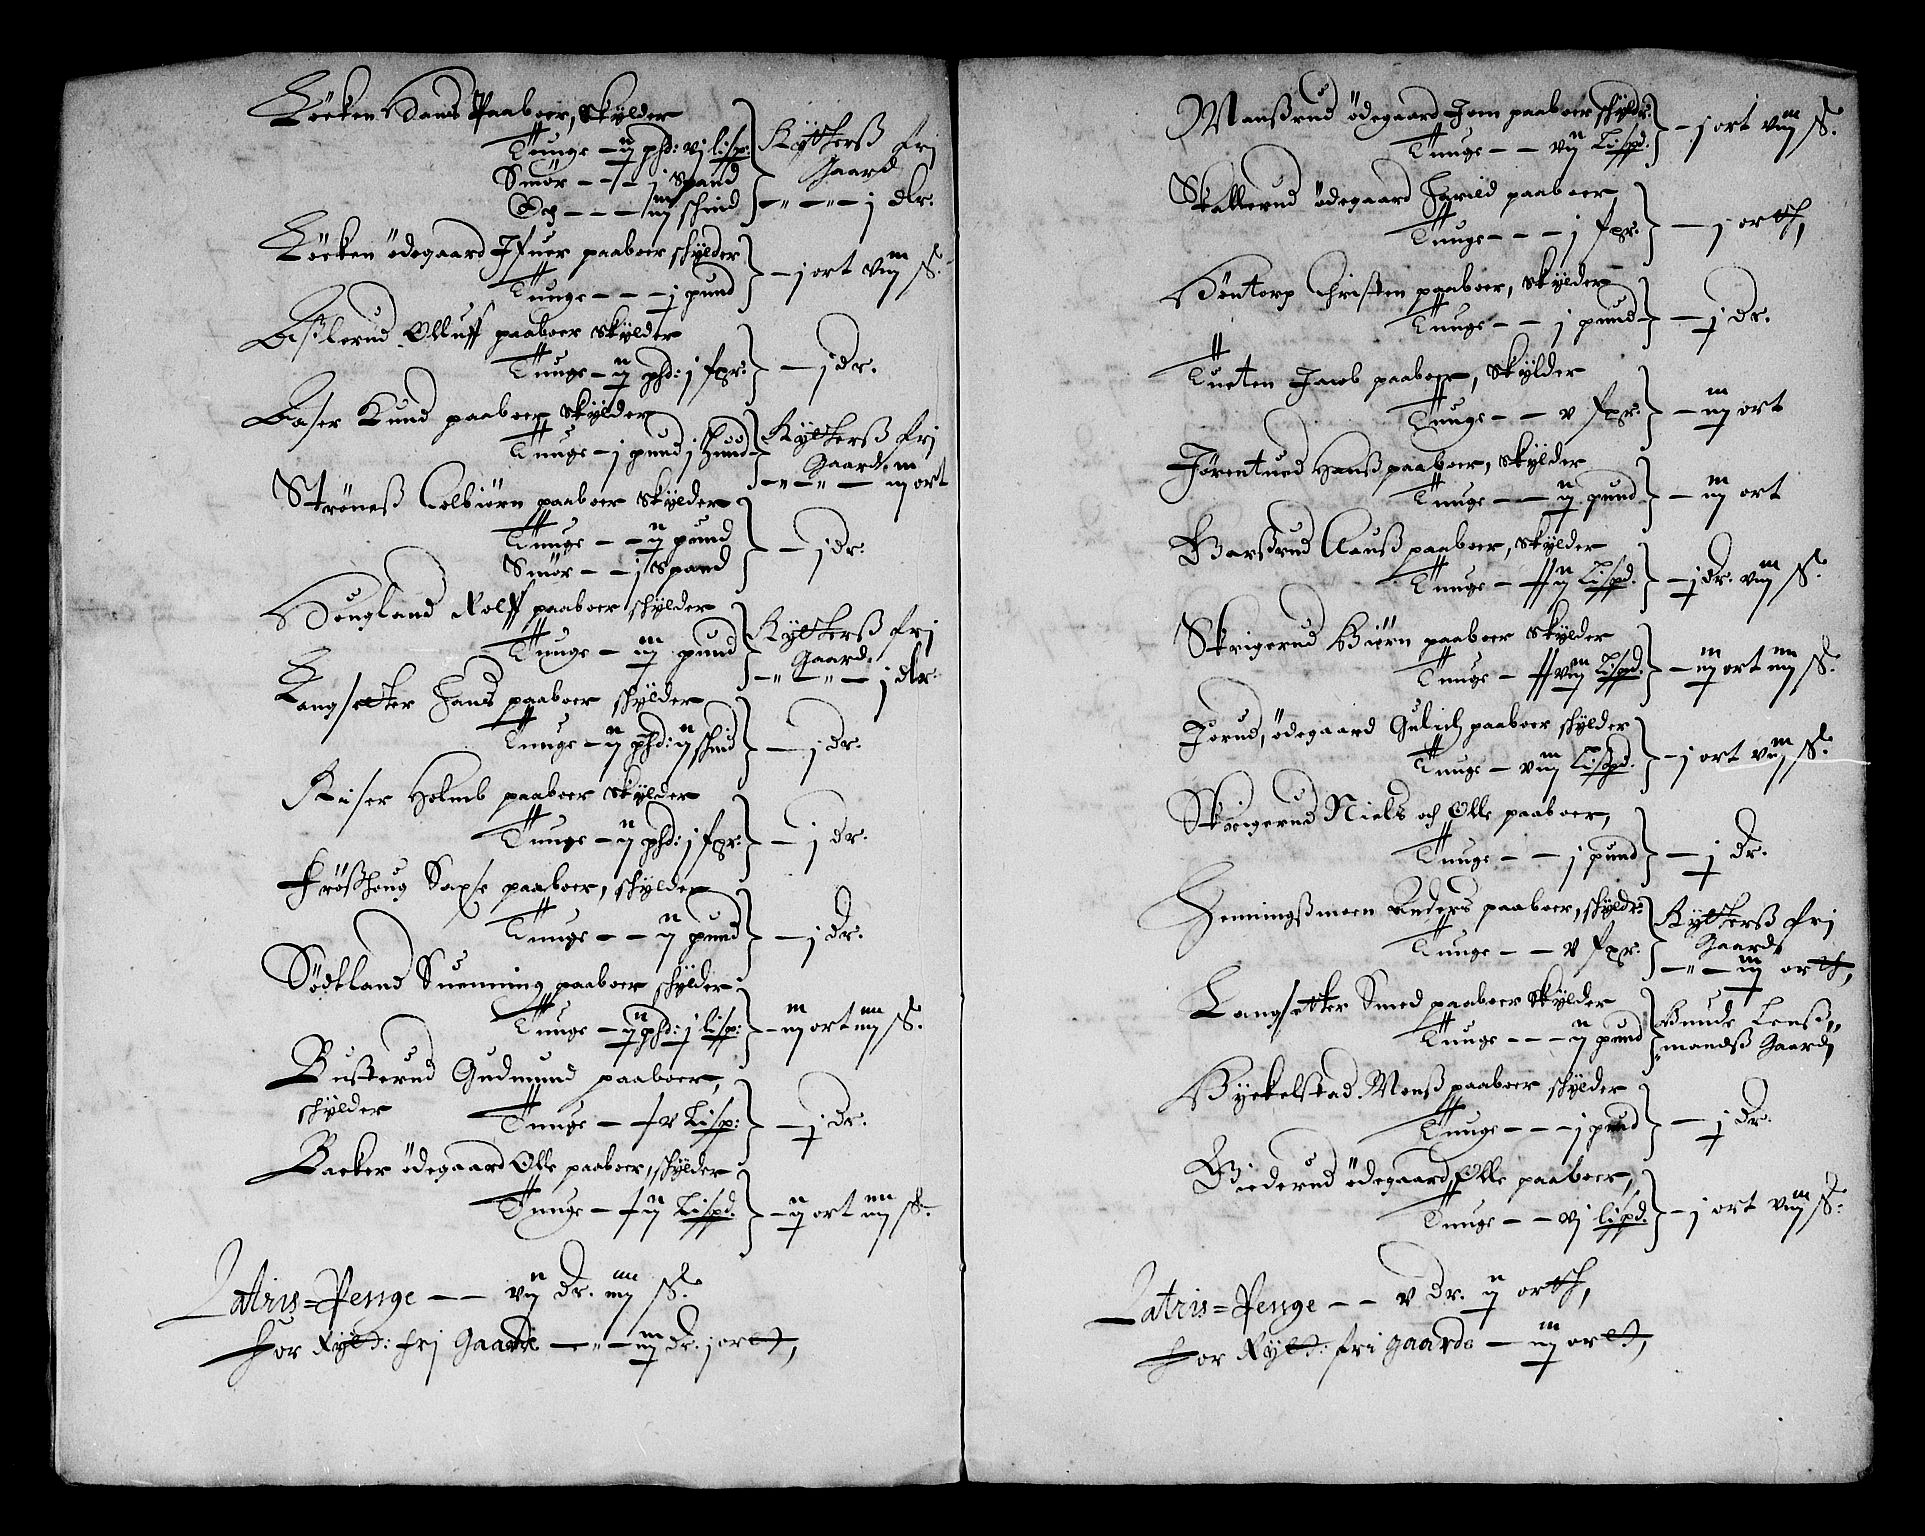 Löcken Hans Paaboer, Skÿlder
Tunge – ij phd: vj lisp:
Smör – – j spand
Och – – – iiij schind
Rÿtterß fri
Gaard
– " – " – j dlr.
Löcken ödegaard Ifuer paaboer schÿlder
Tunge – – – j pund
– j ort viij ß.
Aßlerud Olluff paaboer Skÿlder
Tunge – ij phd: j fgr:
– j dr.
Baser Knud paaboer Skÿlder
Tunge – j pund j hund
Rÿtterß fri
Gaard.
– " – " – iij ort
Ströneß Colbiörn paaboer Skÿlder
Tunge – – ij pund
Smör – – j Spand
– j dr:
Hougland Rolff paaboer schÿlder
Tunge – iij pund
Rÿtterß fri
Gaard.
– " – " – j dlr.
Langsetter Hans paaboer schÿlder
Tunge – ij phd: ij schind
– j dr.
Riser Holmb paaboer Skÿlder
Tunge – ij phd: j fgr:
– j dr.
Frößhoug Saxe paaboer, schÿlder
Tunge – – ij pund
– j dr.
Södtland Suenning paaboer schÿlder
Tunge – ij phd: j lisp:
– iij ort iiij ß.
Bußerud Gudmund paaboer,
schÿlder
Tunge – – v Lisp:
– j dr.
Backer ödegaard Olle paaboer, schÿlder
Tunge – – ij Lispd.
– ij ort iiij ß.
Latris = Penge – – vij dr. iiij ß.
For Rÿtt: frj Gaarde – " – iij dr. j ortt,
Manßrud ödegaard Jom paaboer schÿlder
Tunge – – vij Lispd.
– j ort viij ß.
Skallerud ödegaard Harild paaboer,
Tunge – – – j fgr:
– j orth,
Höntorp Christen paaboer, Skÿlder
Tunge – – j pund
– j dr.
Tueten Jacob paaboer, Skÿlder
Tunge – – v fgr:
– iij ort
Jörentued Hanß paaboer, Skÿlder
Tunge – – ij pund
– iij ort
Barßrud Clauß paaboer, Skÿlder
Tunge – ij Lispd.
– j dr. viij ß.
Skrigerud Biörn paaboer Skÿlder
Tunge – viij Lispd.
– iij ort iiij ß.
Jorud, ödegaard Gulich paaboer schÿlder
Tunge – viij Lispd.
– j ort viij ß.
Skrigerud Niels och Olle paaboer,
Tunge – – j pund
– j dr.
Henningßmoen Anders paaboer, schÿldr:
Tunge – – v fgr:
Rÿtterß fri
Gaard
– " – iij orth,
Langsetter Smed paaboer Skÿlder
Tunge – – – ij pund
Bunde Lenß"
mandß Gaard
Bÿckelstad Monß paaboer schÿlder
Tunge – – – j pund
– j dr.
Biederud ödegaard, Olle paaboer,
Tunge – – vj lispd.
– j ort viij ß.
Latris = Penge – – v dr. ij orth,
For Rÿtt: fri gaarde – iij ortt,